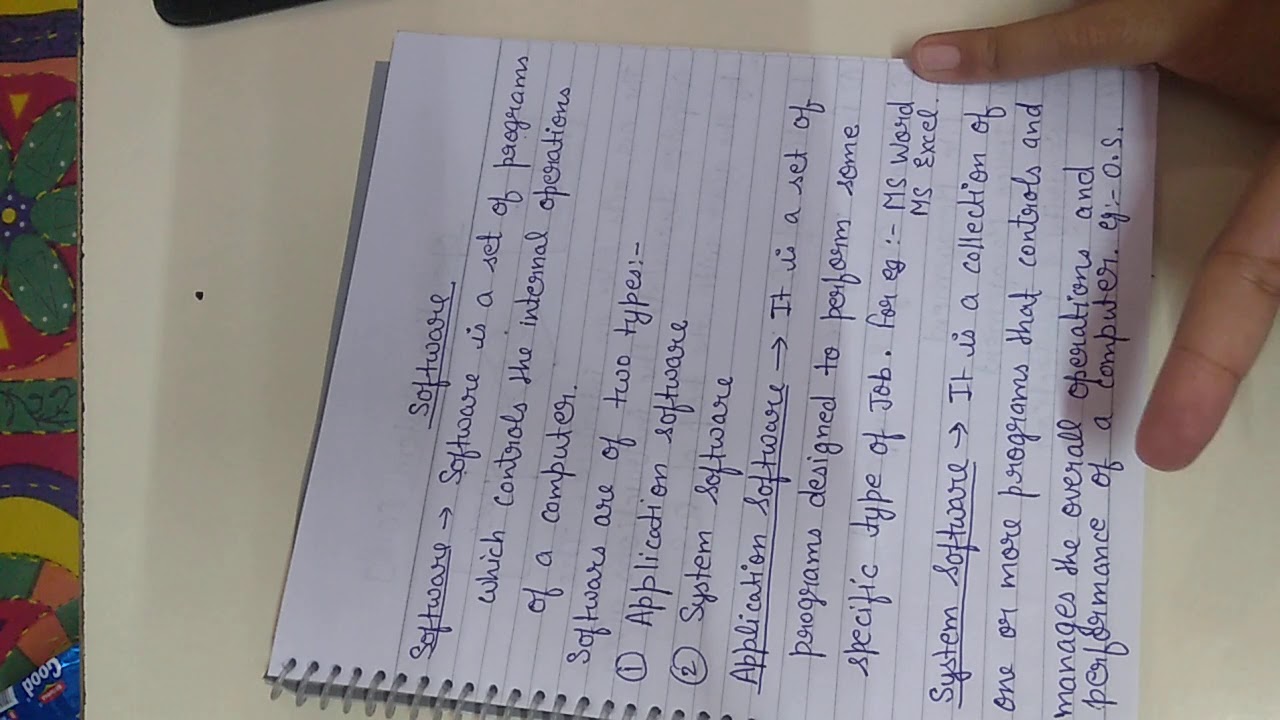 Software
Software → Software is a set of programs
which controls the internal operations
of a computer.
Softwars are of two types:-
① Application software
② System software
Application software → It is a set of
programs designed to perform some
specific type of Job. For eg:- MS Word
MS Excel.
System software → It is a collection of
one or more programs that controls and
manages the overall operations and
performance of a computer. eg:- O.S.
Good